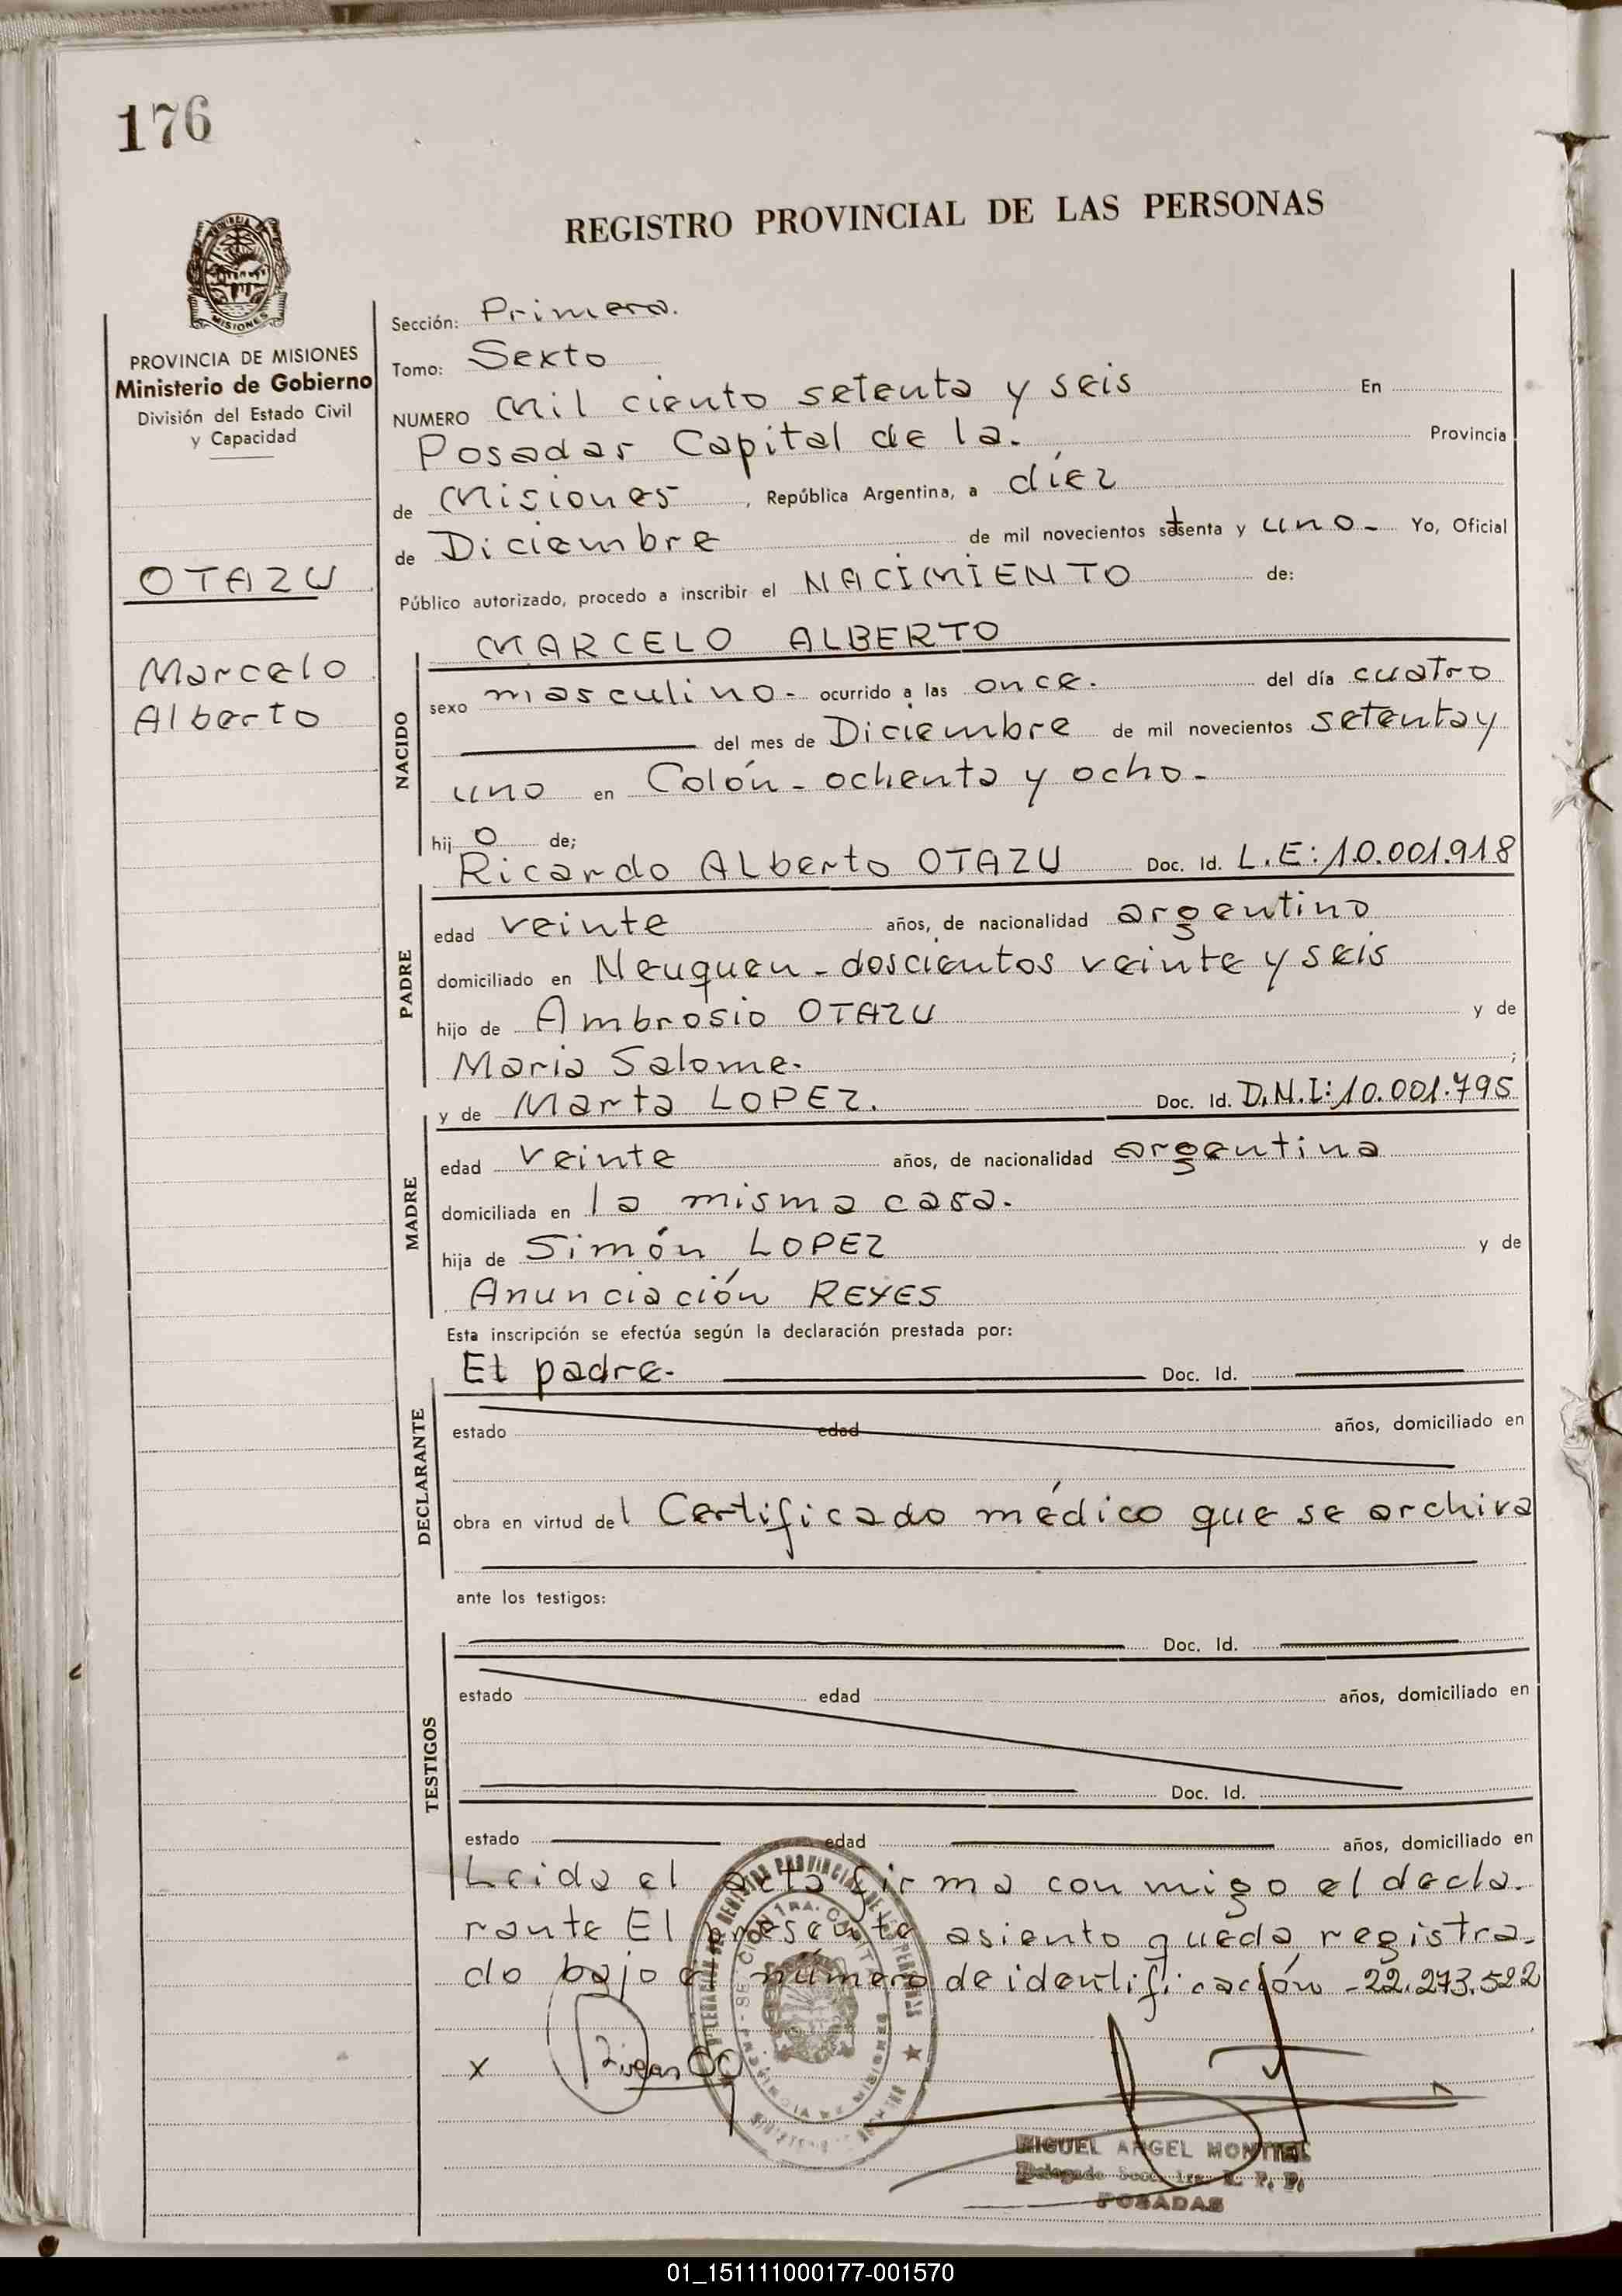 176
REGISTRO PROVINCIAL DE LAS PERSONAS
MISIONES
PROVINCIA DE MISIONES
Ministerio de Gobierno
División del Estado Civil
y Capacidad
OTAZU
Marcelo
Alberto
Sección: Primera.
Tomo: Sexto
NUMERO Mil ciento setenta y seis En
Posadas Capital de la. Provincia
de Misiones, República Argentina, a diez
de Diciembre de mil novecientos setenta y uno- Yo, Oficial
Público autorizado, procedo a inscribir el NACIMIENTO de:
NACIDO
MARCELO ALBERTO
sexo masculino- ocurrido a las once. del día cuatro
del mes de Diciembre de mil novecientos setenta y
uno en Colón- ochenta y ocho-
hij o de;
PADRE
Ricardo Alberto OTAZU Doc. Id. L.E:10.001.918
edad veinte años, de nacionalidad argentino
domiciliado en Neuquen-doscientos veinte y seis
hijo de Ambrosio OTAZU y de
Maria Salome. ;
MADRE
y de Marta LOPEZ. Doc. Id. D.N.I:10.001.795
edad veinte años, de nacionalidad argentina
domiciliada en la misma casa.
hija de Simón LOPEZ y de
Anunciación REYES
Esta inscripción se efectúa según la declaración prestada por:
DECLARANTE
El padre. Doc. Id.
estado edad años, domiciliado en
obra en virtud del Certificado médico que se archiva
ante los testigos:
TESTIGOS
Doc. Id.
estado edad años, domiciliado en
Doc. Id.
estado edad años, domiciliado en
Leida el acta firma con migo el decla-
rante El presente asiento queda registra-
do bajo el número de identificación -22.273.522
x
MIGUEL ANGEL MONTIEL
Delegado Secc. 1ra. R. P. P.
POSADAS
01_151111000177-001570